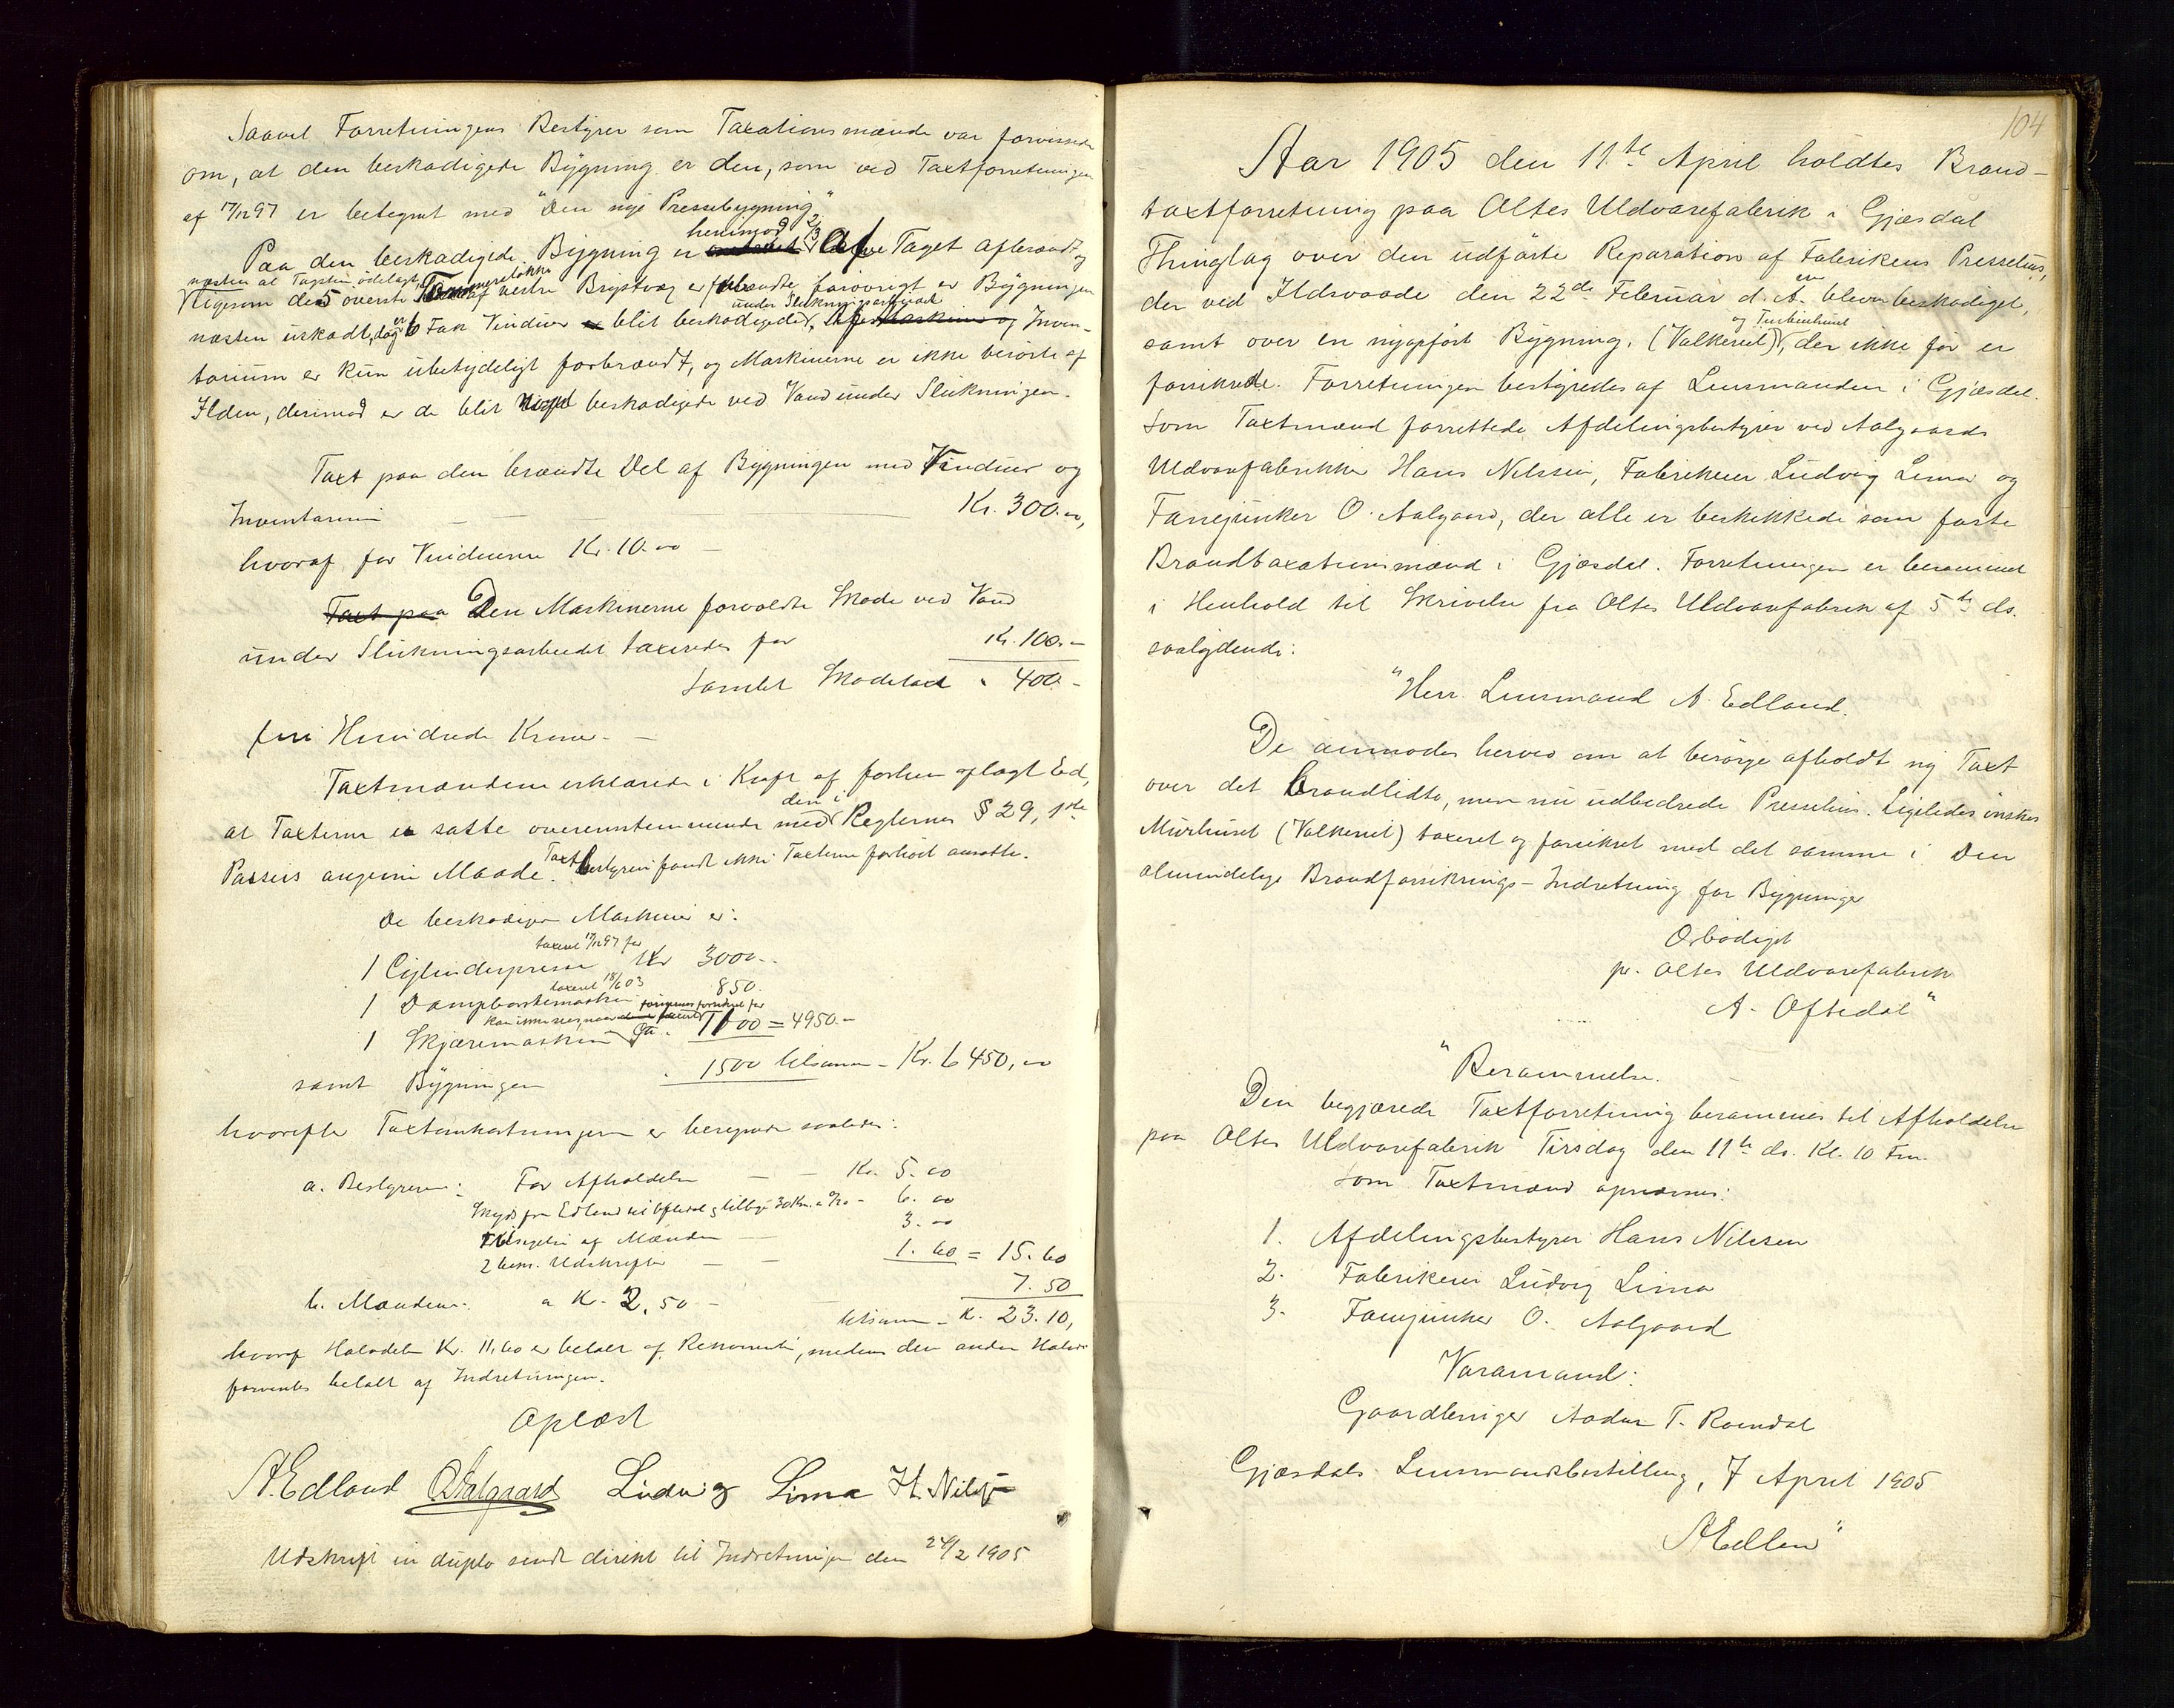 Saavel Forretningens Bestyrer som Taxationsmændene var forvissede
om, at den beskadigede Bygning er den, som ved Taxtforretningen
af 17/12 97 er betegnet med "Den nye Pressebygning"
henimod 2/3
Paa den beskadigede Bygning er af Taget afbrændt, og
næsten al Tagsten ødelagt,
ligesom de 5 øverste af vestre Brystvæg er forbrændte forøvrigt er Bygningen
under Slukningsarbeidet
næsten uskadt, dog er 6 Fag Vinduer blit beskadigede, og Inven-
tarium er kun ubetydeligt forbrændt, og Maskinerne er ikke berørte af
Ilden, derimod er de blit noget beskadigede ved Vand under Slukningen.
Taxt paa den brændte Del af Bygningen med Vinduer og
Inventarium — — — Kr. 300.00,
hvoraf for Vinduerne Kr. 10.00 —
Taxt paa Den Maskinerne forvoldte Skade ved Vand
under Slukningsarbeidet taxeredes for Kr. 100.-
Samlet Skadetaxt " 400.-
fire Hundrede Kroner. —
Taxtmændene erklærede i Kraft af forhen aflagt Ed,
den i
at Taxterne er satte overensstemmende med Reglernes § 29, 1ste
Passus angivne Maade. Taxtbestyreren fandt ikke Taxterne forhøit ansatte.
De beskadigede Maskiner er:
taxeret 17/12 97 for
1 Cylinderpresse Kr 3000.-
taxeret 18/6 03
1 Dampbørstemaskin 850.
kan ikke sees, naar forsikret for
1 Skjæremaskin 1100 = 4950.-
samt Bygningen 1500 tilsammen - Kr. 6450,00
hvorefter Taxtomkostningerne er beregnede saaledes:
a. Bestyreren: For Afholdelse — Kr. 5.00
Skyds fra Edland til Oftedal og tilbage 30 Km. a 0/20 - 6.00
Tilsigelse af Mændene — 3.00
2 bem. Udskrifter — — 1.60 = 15.60
b. Mændene: a Kr. 2,50 — 7.50
tilsammen - K. 23.10,
hvoraf Halvdelen Kr. 11,60 er betalt af Rekvirenten, medens den anden Halvdel
forventes betalt af Indretningen.
Oplæst
A. Edland O Aalgaard Ludvig Lima H. Nilssen
Udskrift in duplo sendt direkte til Indretningen den 24/2 1905
104
Aar 1905 den 11te April holdtes Brand-
taxtforretning paa Oltes Uldvarefabrik i Gjæsdal
Thinglag over den udførte Reparation af Fabrikens Pressehus,
der ved Ildsvaade den 22de Februar d. A. blev beskadiget,
og Turbinhuset
samt over en nyopført Bygning. (Valkeriet), der ikke før er
forsikrede. Forretningen bestyredes af Lensmanden i Gjæsdal.
Som Taxtmænd forrettede Afdelingsbestyrer ved Aalgaards
Uldvarefabrikker Hans Nilssen, Fabrikeier Ludvig Lima og
Fanejunker O. Aalgaard, der alle er beskikkede som faste
Brandtaxationsmænd i Gjæsdal. Forretningen er berammet
i Henhold til Skrivelse fra Oltes Uldvarefabrik af 5te ds.
saalydende:
"Herr Lensmand A. Edland.
De anmodes herved om at besørge afholdt ny Taxt
over det brandlidte, men nu udbedrede Pressehus. Ligeledes ønskes
Murhuset (Valkeriet) taxeret og forsikret med det samme i Den
almindelige Brandforsikrings-Indretning for Bygninger
Ærbødigst
pr. Oltes Uldvarefabrik
A. Oftedal"
"Berammelse.
Den begjærede Taxtforretning berammes til Afholdelse
paa Oltes Uldvarefabrik Tirsdag den 11te ds. Kl. 10 Fm.
Som Taxtmænd opnævnes:
1. Afdelingsbestyrer Hans Nilssen
2. Fabrikeier Ludvig Lima
3. Fanejunker O. Aalgaard
Varamand:
Gaardbruger Aadne T. Ravndal
Gjæsdals Lensmandsbestilling, 7 April 1905
A Edland"